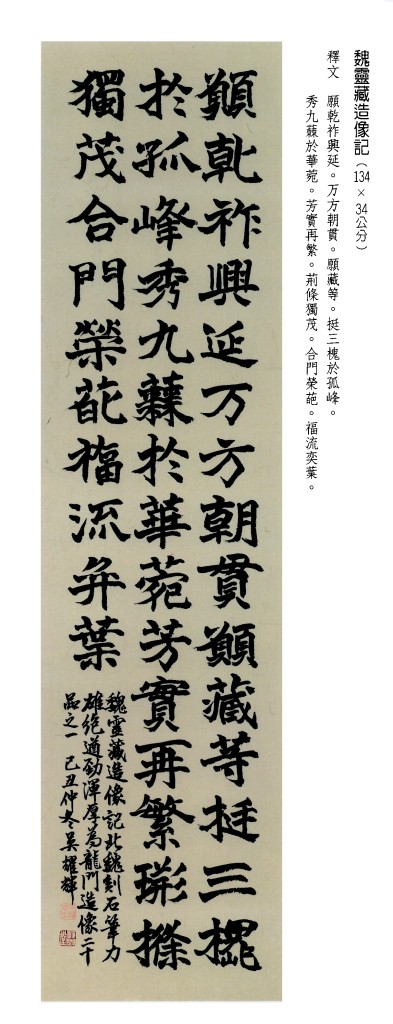 魏靈藏造像記（134 × 34公分）
釋文　願乾祚興延。万方朝貫。願藏等。挺三槐於孤峰。
秀九蕀於華菀。芳實再繁。荊條獨茂。合門榮葩。福流奕葉。
願乹祚興延万方朝貫願藏等挺三槐
於孤峰秀九蕀於華菀芳實再繁荊條
獨茂合門榮葩福流奕葉
魏靈藏造像記北魏刻石筆力
雄絶遒勁渾厚為龍門造像二十
品之一己丑仲冬吳耀輝